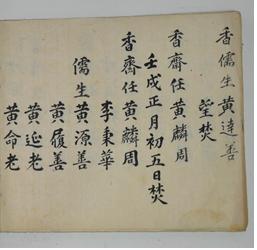 香儒生黃達善
望焚
香齋任黃麟周
壬戌正月初五日焚
香齋任黃麟周
李秉華
儒生黃源善
黃履善
黃延老
黃命老